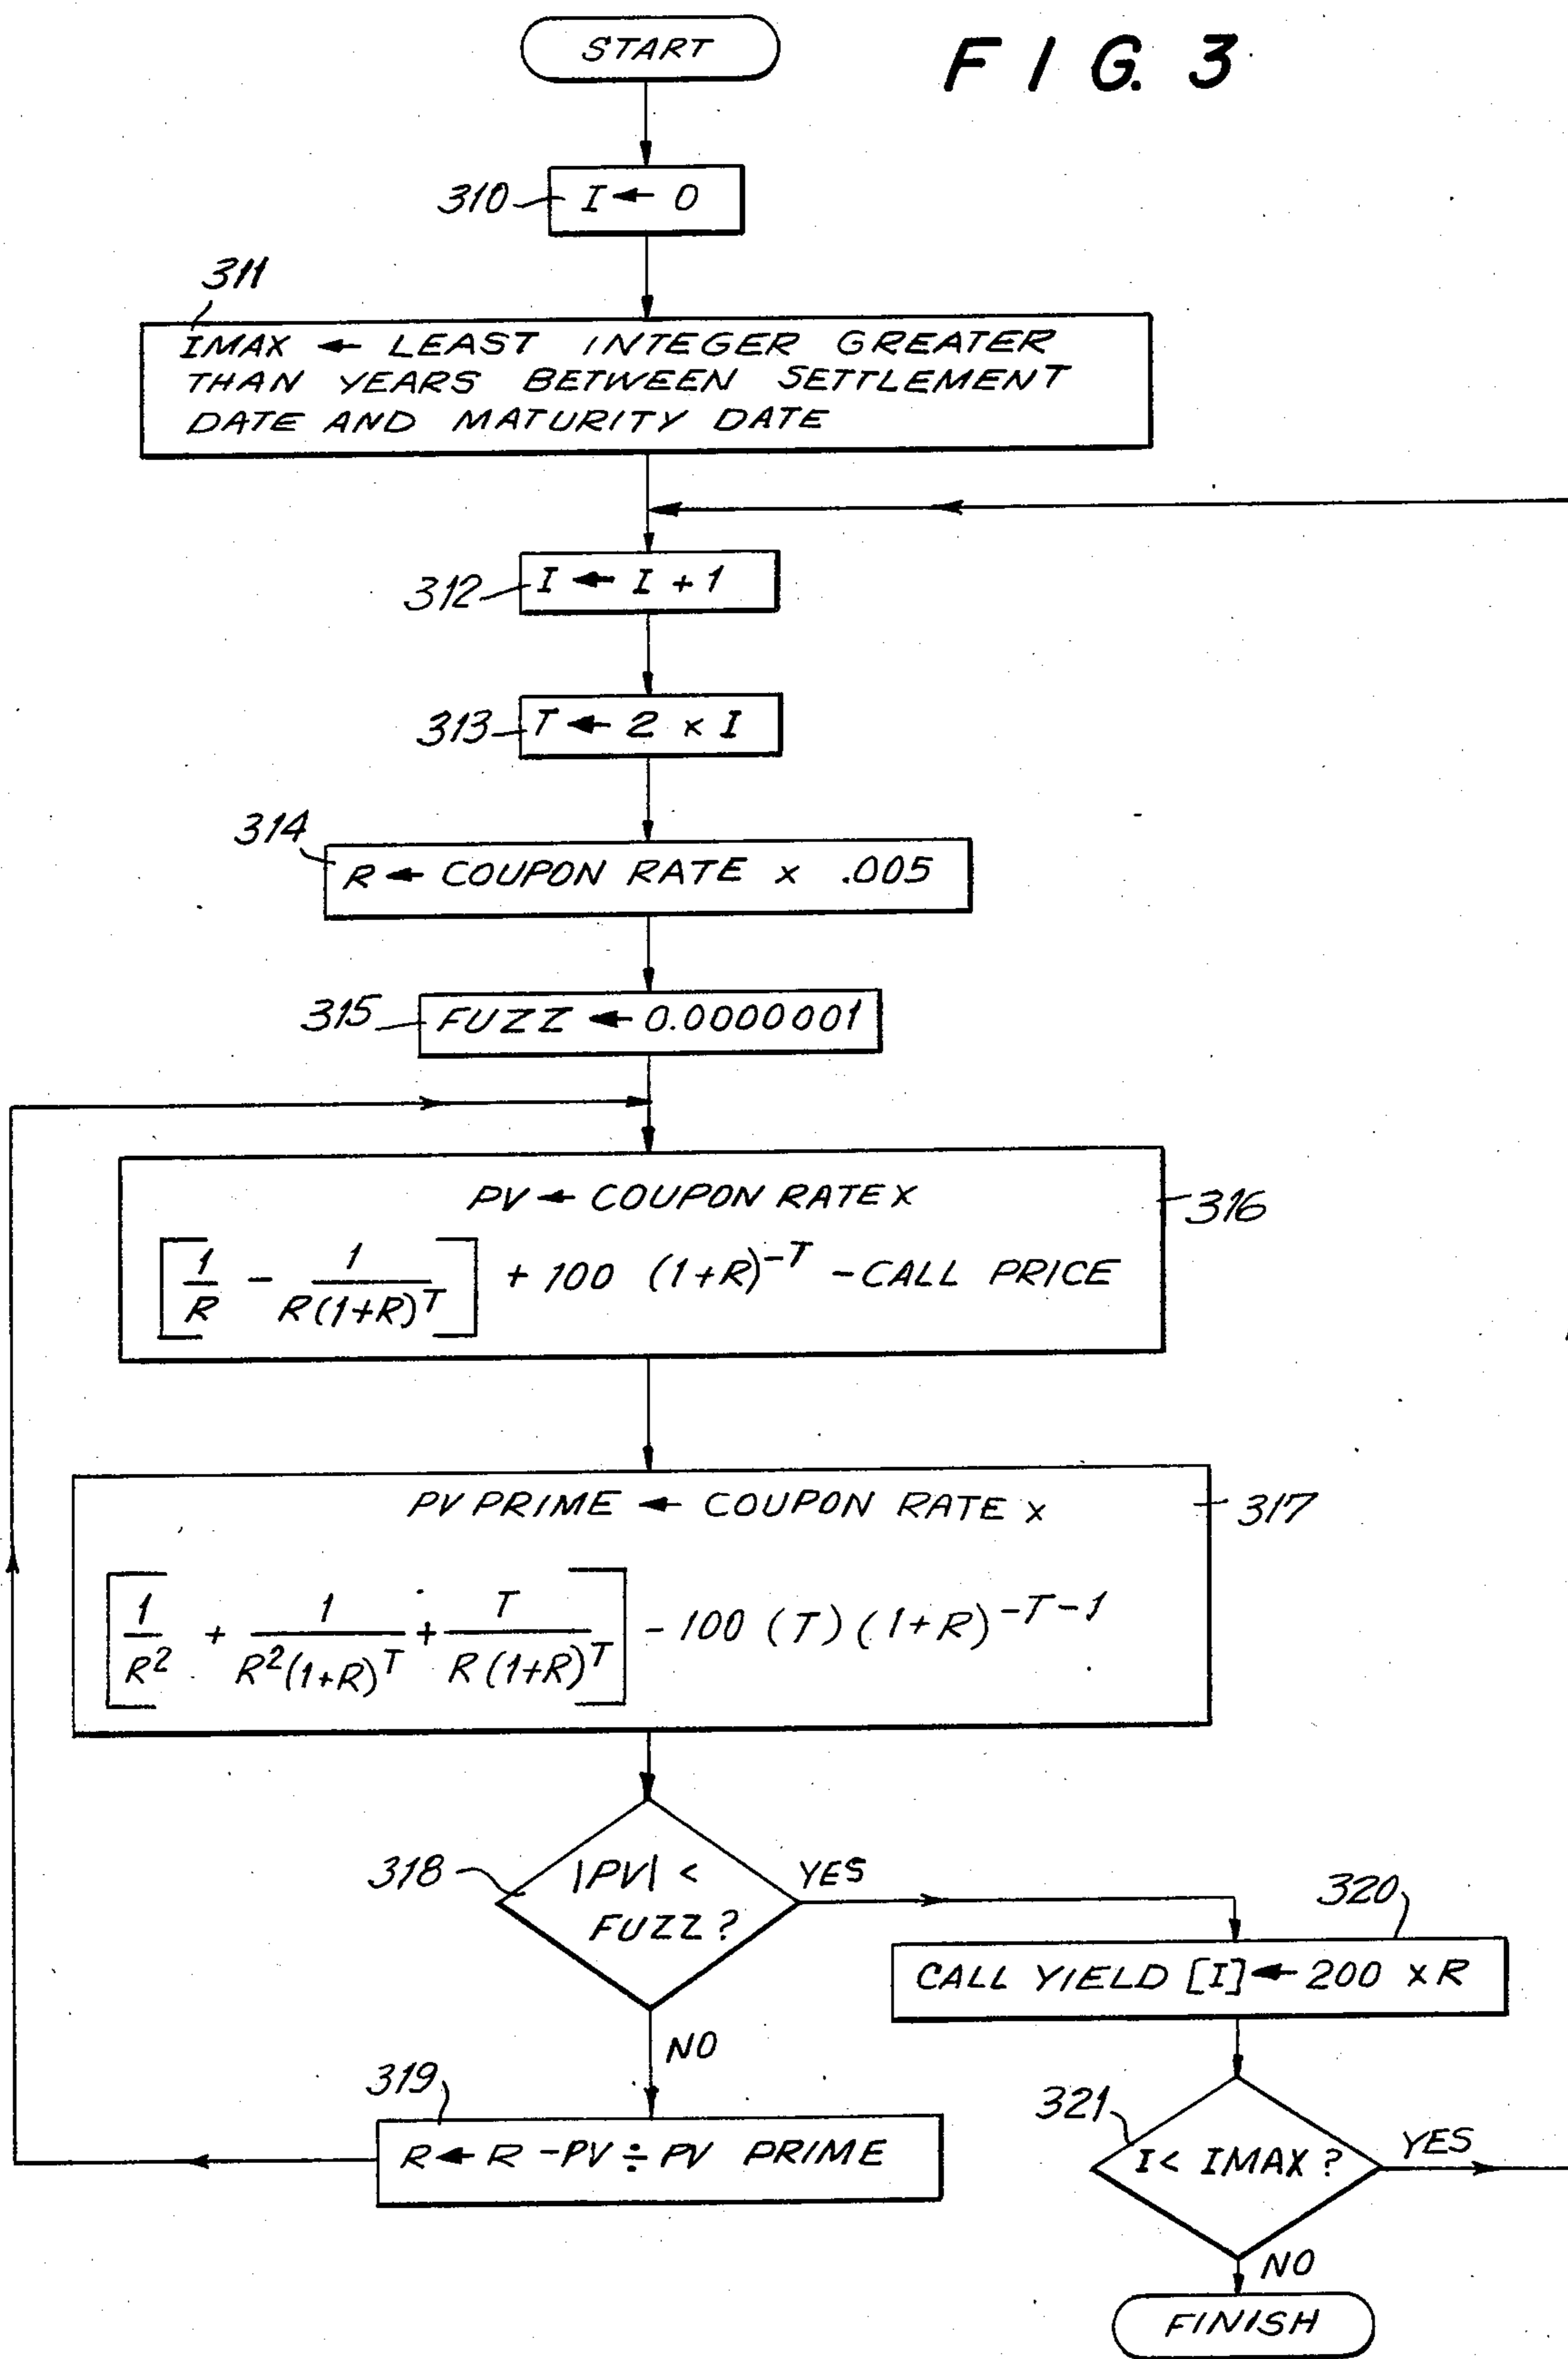 START
FIG. 3
310
I ← 0
311
IMAX ← LEAST INTEGER GREATER
THAN YEARS BETWEEN SETTLEMENT
DATE AND MATURITY DATE
312
I ← I + 1
313
T ← 2 × I
314
R ← COUPON RATE × .005
315
FUZZ ← 0.0000001
PV ← COUPON RATE X
316
[1/R - 1/R(1+R)^T] + 100 (1+R)^-T - CALL PRICE
PV PRIME ← COUPON RATE X
317
[1/R² + 1/R²(1+R)^T + T/R(1+R)^T] - 100 (T)(1+R)^-T-1
318
|PV| <
FUZZ?
YES
320
CALL YIELD [I] ← 200 × R
NO
319
R ← R - PV ÷ PV PRIME
321
I < IMAX?
YES
NO
FINISH